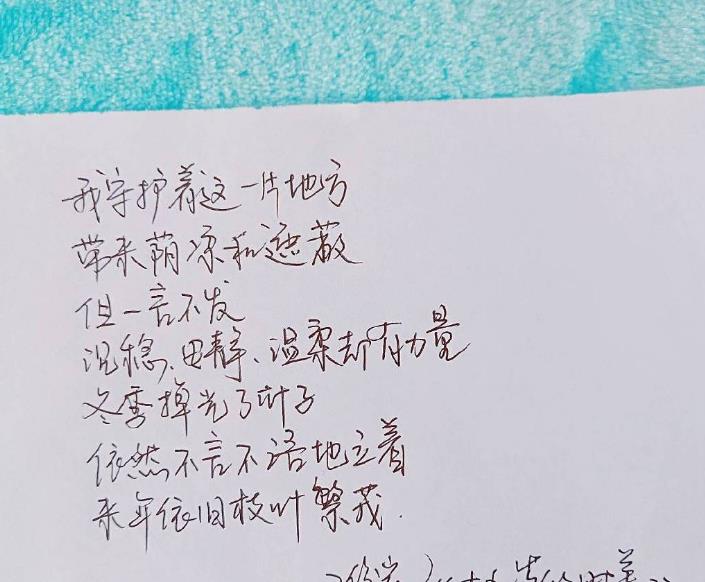 我守护着这一片地方
带来荫凉和遮蔽
但一言不发
沉稳、安静、温柔却有力量
冬季掉光了叶子
依然不言不语地立着
来年依旧枝叶繁茂.